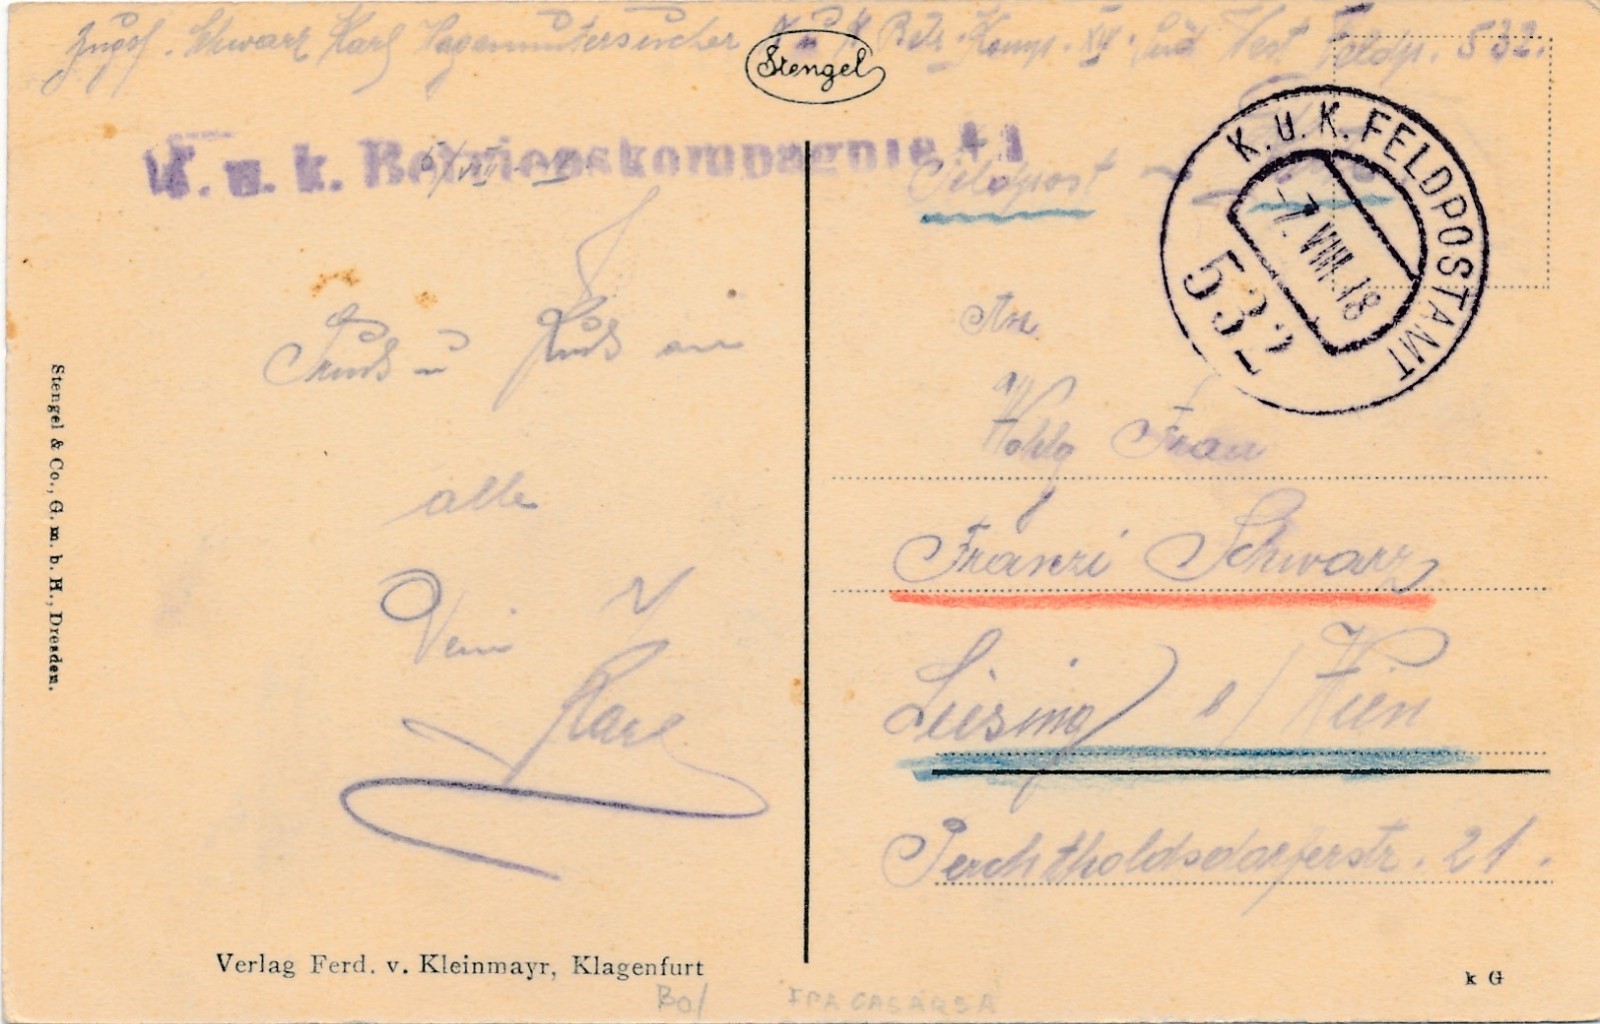 Zugsf. Schwarz Karl Wagenuntersucher K u K Betr. Komp. XII. Süd West Feldp. 532.
Stengel
K. u. k. Betriebskompagnie
Feldpost
K. U. K. FELDPOSTAMT
-7. VIII. 18
532
Gruß u Kuß an
alle
Dein
Karl
An
Wohlg Frau
Franzi Schwarz
Liesing b/ Wien
Perchtholdsdorferstr. 21.
Stengel & Co., G. m. b. H., Dresden.
Verlag Ferd. v. Kleinmayr, Klagenfurt
k G
Bo/
FPA CASARSA